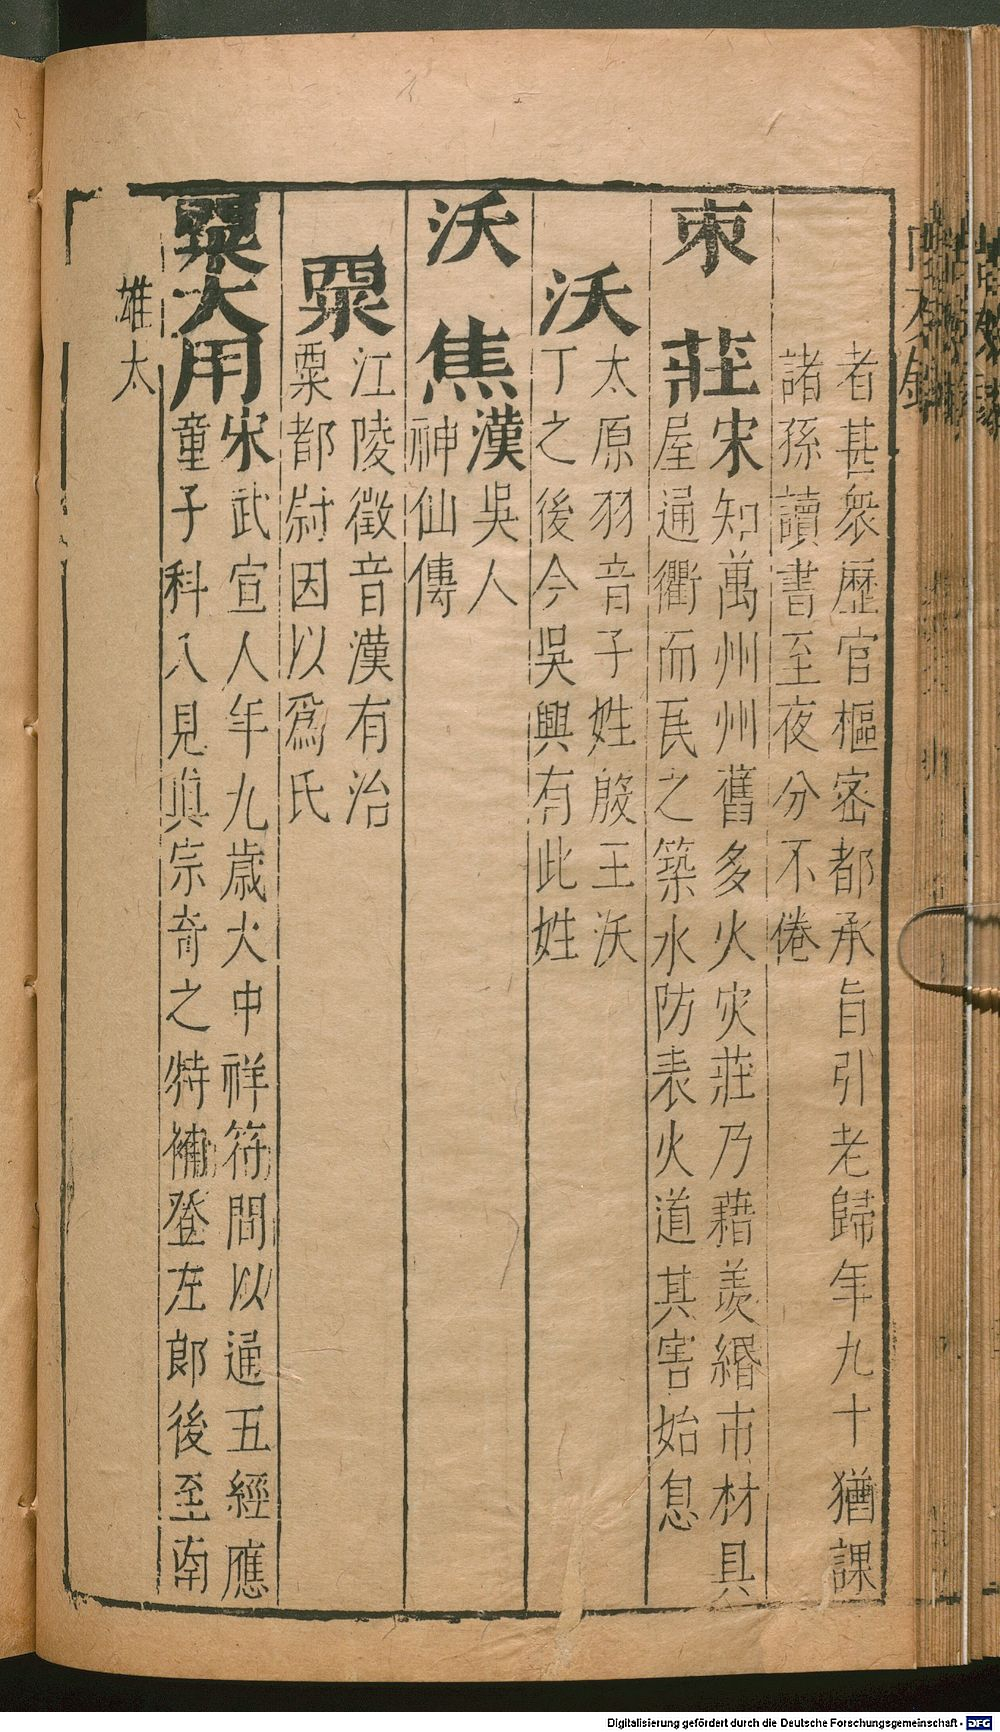 者甚衆歷官樞密都承旨引老歸年九十猶課
諸孫讀書至夜分不倦
束莊
宋知萬州州舊多火灾莊乃藉羨緡市材具
屋通衢而民之築水防表火道其害始息
沃
太原羽音子姓殷王沃
丁之後今吳興有此姓
沃焦
漢吳人
神仙傳
粟
江陵徵音漢有治
粟都尉因以爲氏
粟大用
宋武宣人年九歲大中祥符間以通五經應
童子科入見眞宗奇之特補登左郎後至南
雄太
Digitalisierung gefördert durch die Deutsche Forschungsgemeinschaft - DFG